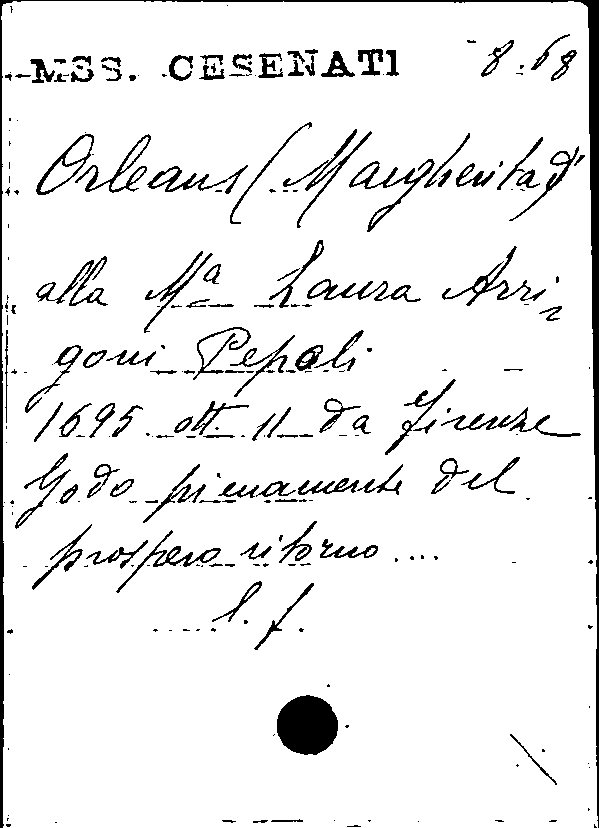 MSS. CESENATI 8.68
Orleans (Margherita d'
alla Mª Laura Arri-
goni Pepoli
1695 ott. 11 da Firenze
Godo pienamente del
prospero ritorno....
l. f.